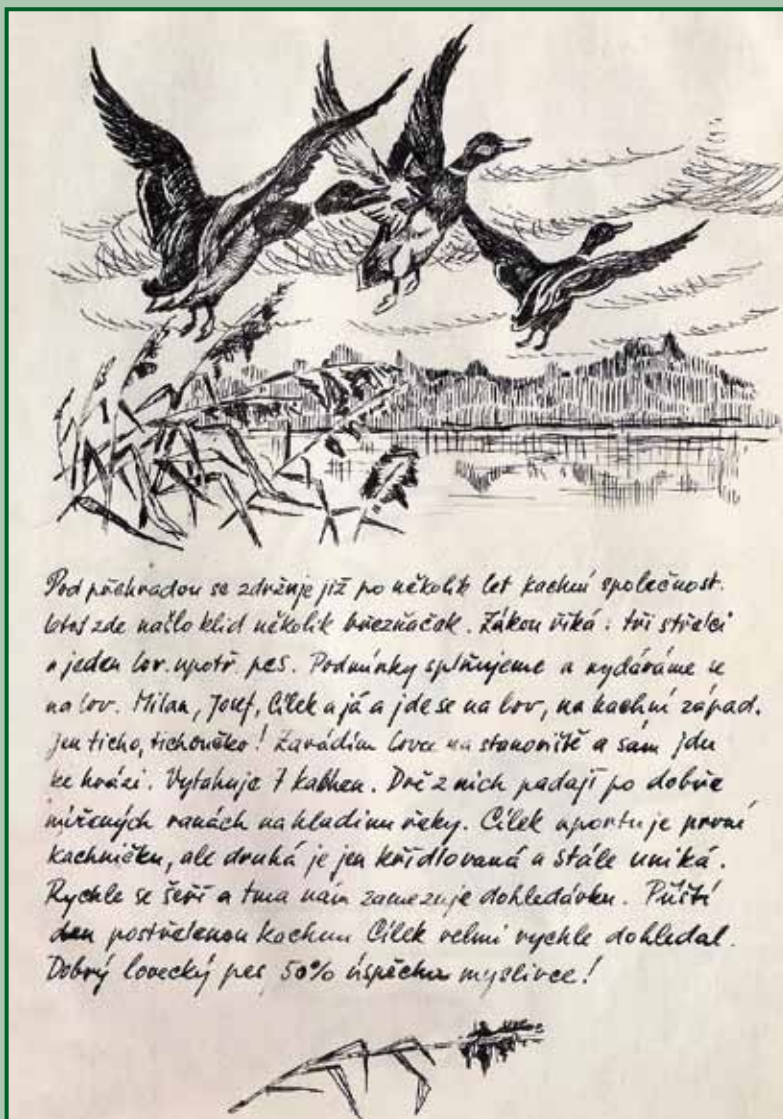 Pod přehradou se zdržuje již po několik let kachní společnost.
letos zde našlo klid několik březňaček. Zákon říká: tři střelci
a jeden lov. upotř. pes. Podmínky splňujeme a vydáváme se
na lov. Milan, Josef, Cilek a já a jde se na lov, na kachní západ.
Jen ticho, tichoučko! Zavádím lovce na stanoviště a sám jdu
ke hrázi. Vytahuje 7 kachen. Dvě z nich padají po dobře
mířených ranách na hladinu řeky. Cilek aportuje první
kachničku, ale druhá je jen křídlovaná a stále uniká.
Rychle se šeří a tma nám zamezuje dohledávku. Příští
den postřelenou kachnu Cilek velmi rychle dohledal.
Dobrý lovecký pes, 50% úspěchu myslivce!